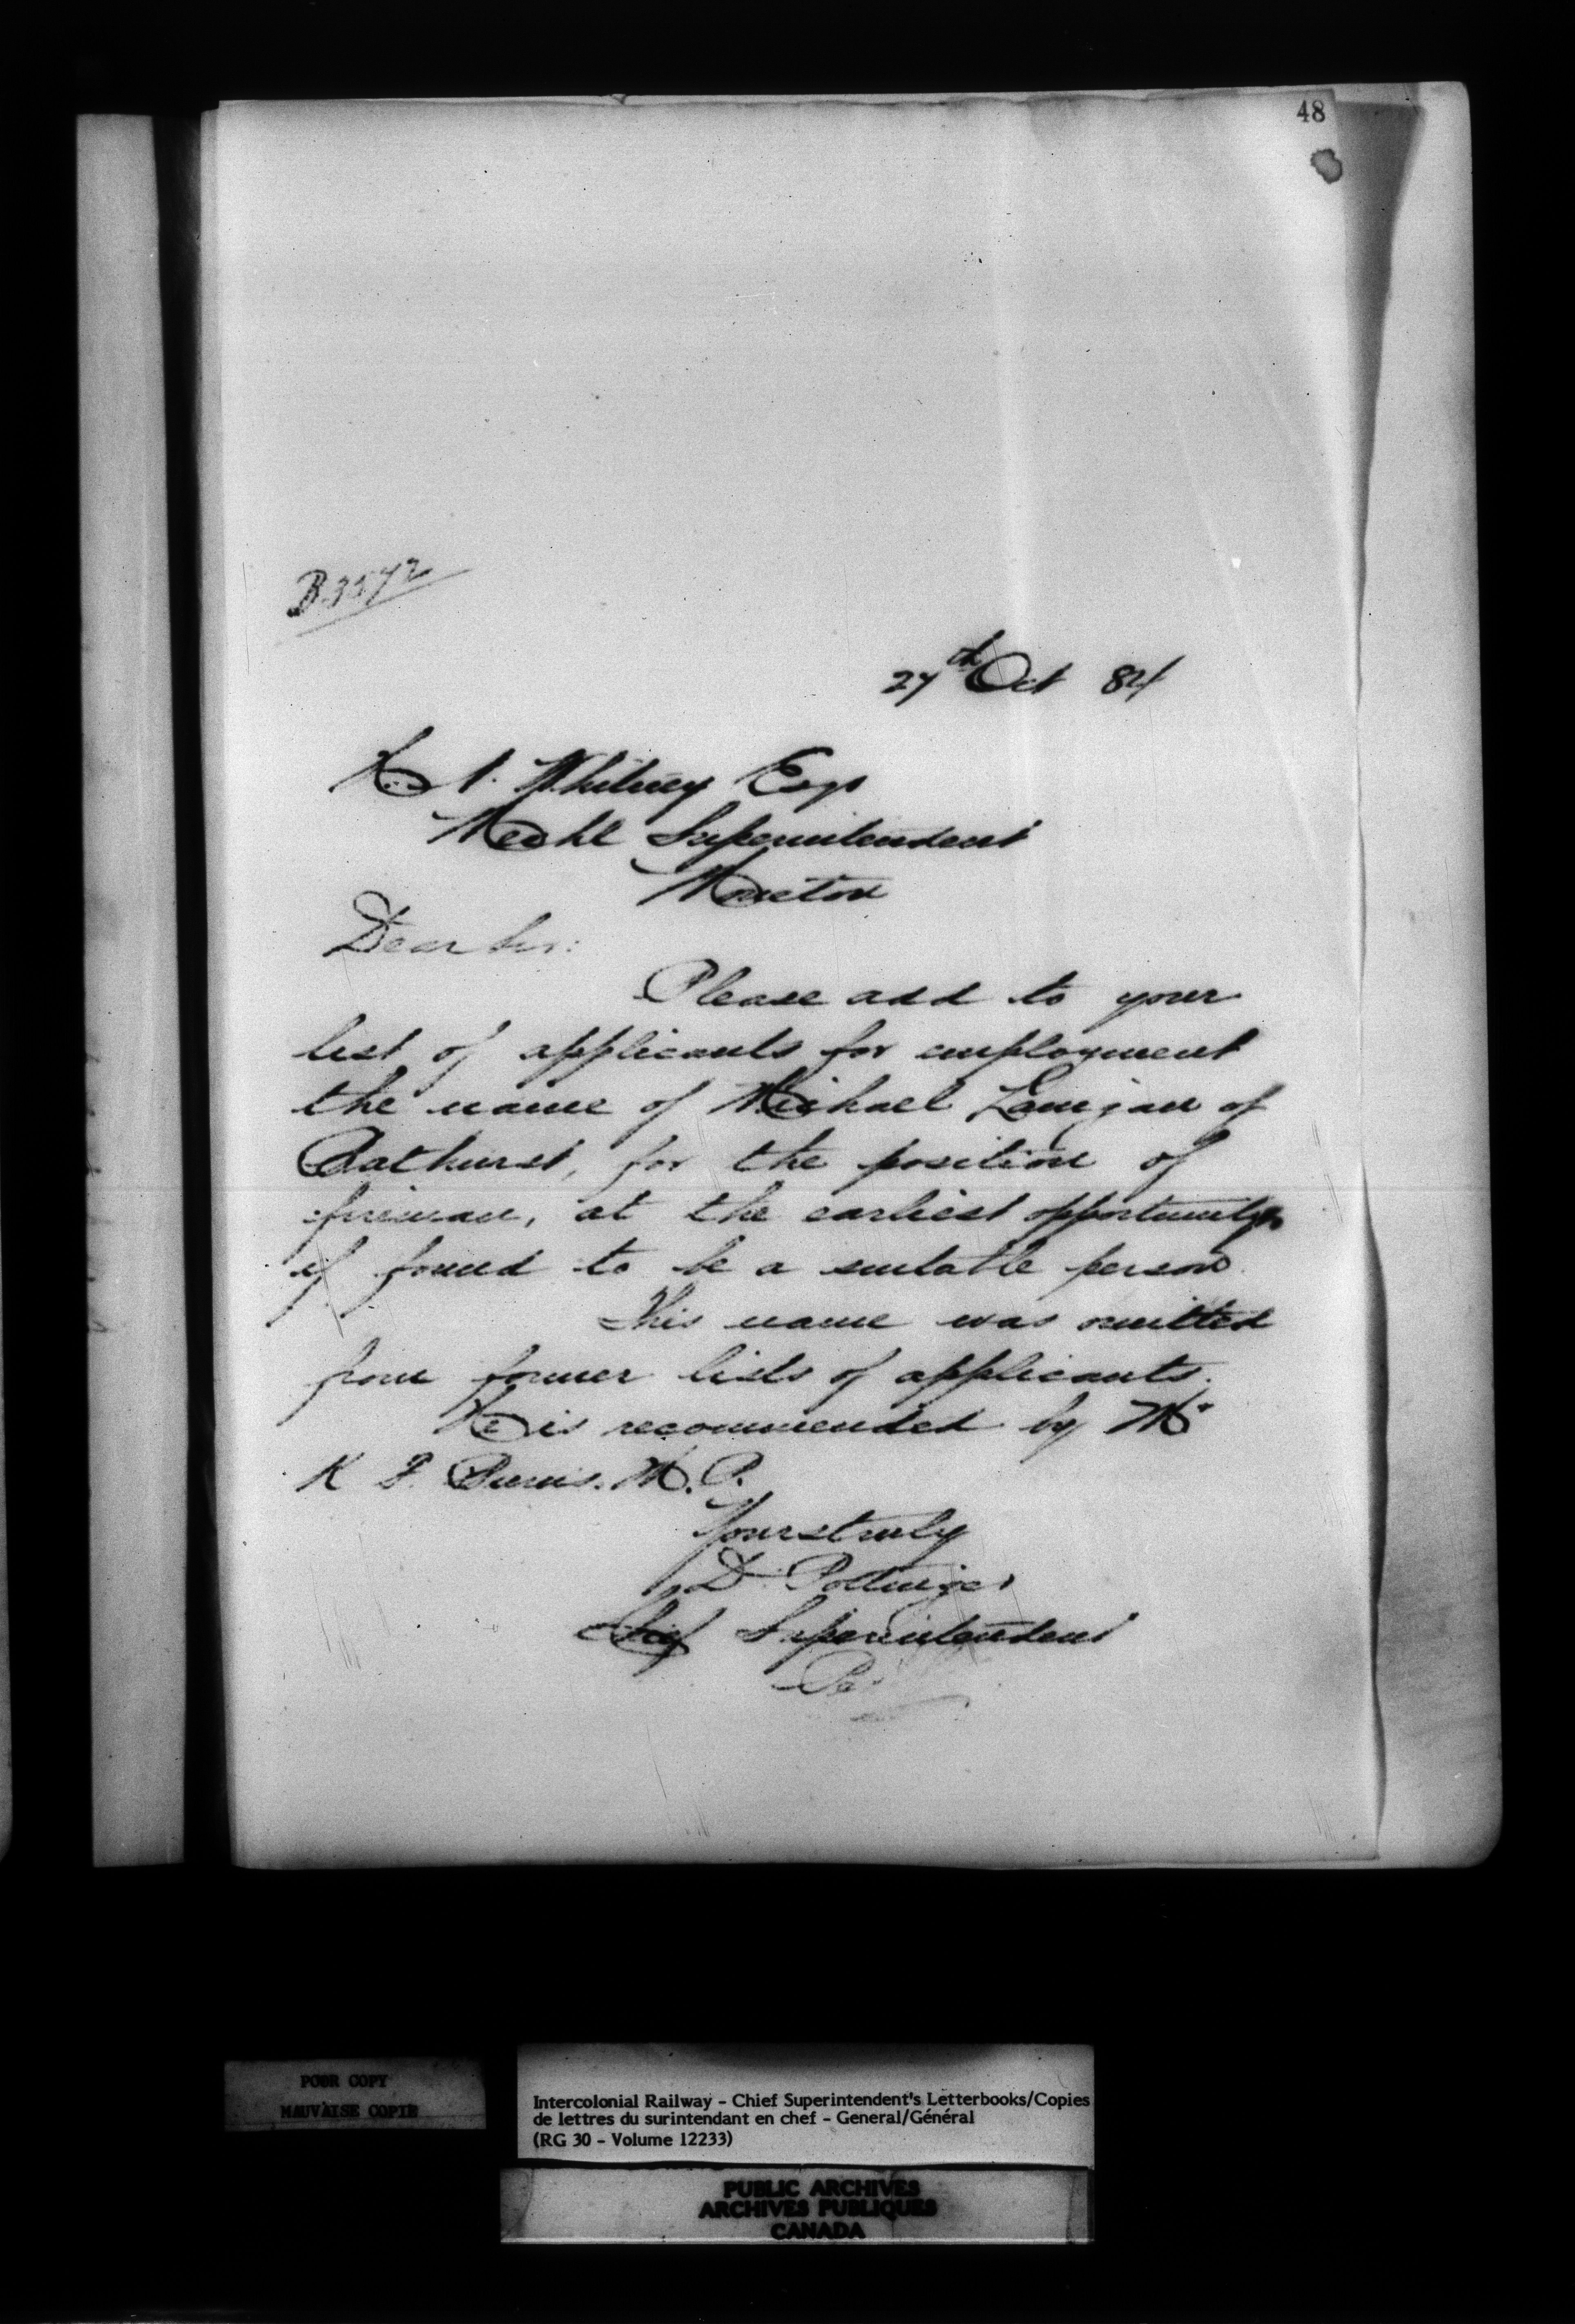 48
B.3572
27th Oct 84
H. A. Whitney Esqr
Mechl Superintendent
Moncton
Dear Sir:
Please add to your
list of applicants for employment
the name of Michael Lanigan of
Bathurst, for the position of
fireman, at the earliest opportunity
if found to be a suitable person.
This name was omitted
from former lists of applicants.
He is recommended by Mr
K F. Burns. M. P.
Yours truly
D. Pottinger
Chief Superintendent
POOR COPY
MAUVAISE COPIE
Intercolonial Railway - Chief Superintendent's Letterbooks/Copies
de lettres du surintendant en chef - General/Général
(RG 30 - Volume 12233)
PUBLIC ARCHIVES
ARCHIVES PUBLIQUES
CANADA